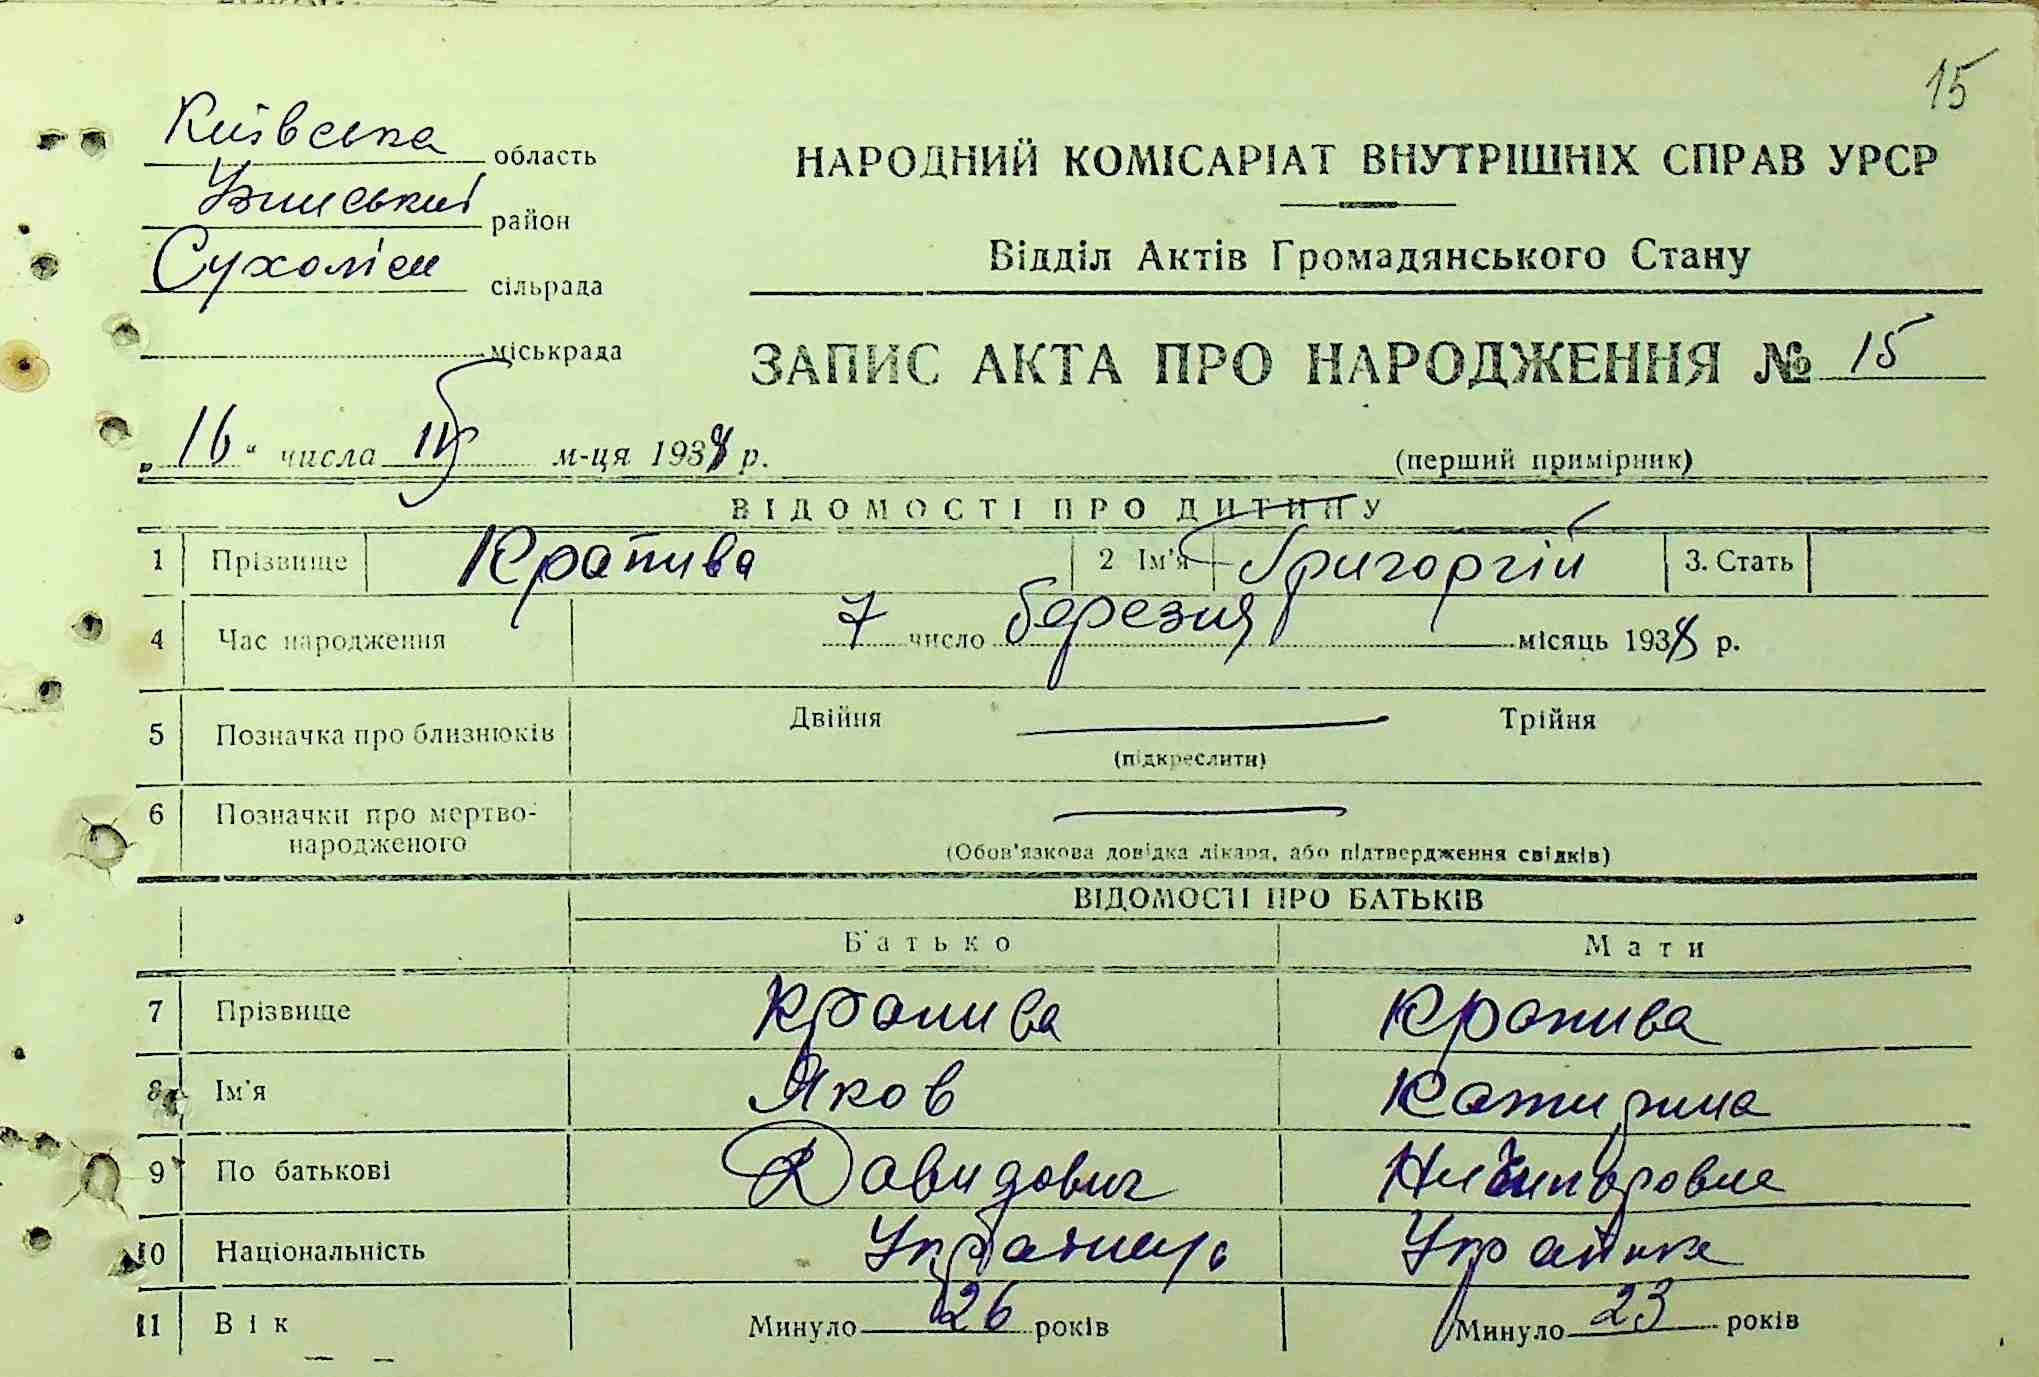 15
Київська область
НАРОДНИЙ КОМІСАРІАТ ВНУТРІШНІХ СПРАВ УРСР
Узинський район
Відділ Актів Громадянського Стану
Сухоліси сільрада
міськрада
ЗАПИС АКТА ПРО НАРОДЖЕННЯ № 15
„16" числа ІІІ м-ця 1938 р.
(перший примірник)
ВІДОМОСТІ ПРО ДИТИНУ
1 Прізвище Крапива 2 Ім'я Григоргій 3. Стать
4 Час народження 7 число березня місяць 1938 р.
5 Позначка про близнюків Двійня Трійня
(підкреслити)
6 Позначки про мертво-
народженого
(Обов'язкова довідка лікаря, або підтвердження свідків)
ВІДОМОСТІ ПРО БАТЬКІВ
Батько Мати
7 Прізвище Крапива Крапива
8 Ім'я Яков Катирина
9 По батькові Давидович Ничипоровна
10 Національність Українець Українка
11 Вік Минуло 26 років Минуло 23 років